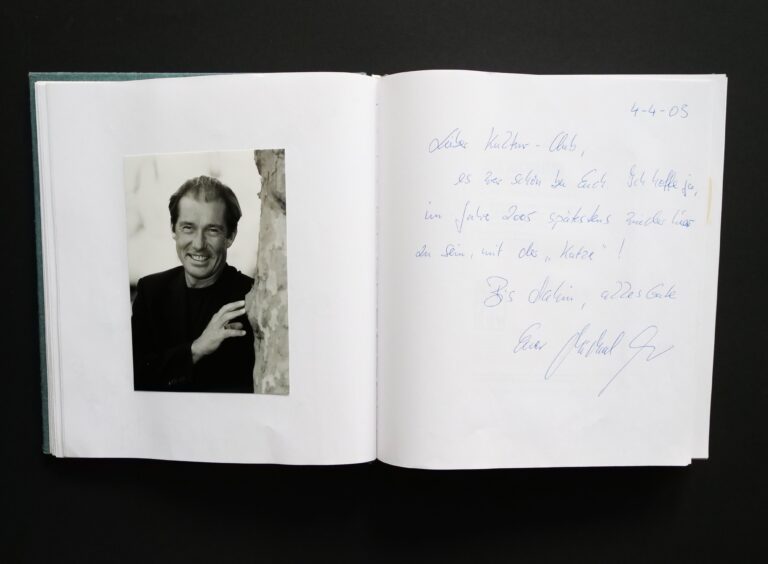 4-4-03
Lieber Kultur-Club,
es war schön bei Euch Ich hoffe ja,
im Jahre 2005 spätestens wieder hier
zu sein, mit der „Katze"!
Bis dahin, alles Gute
Euer Michael